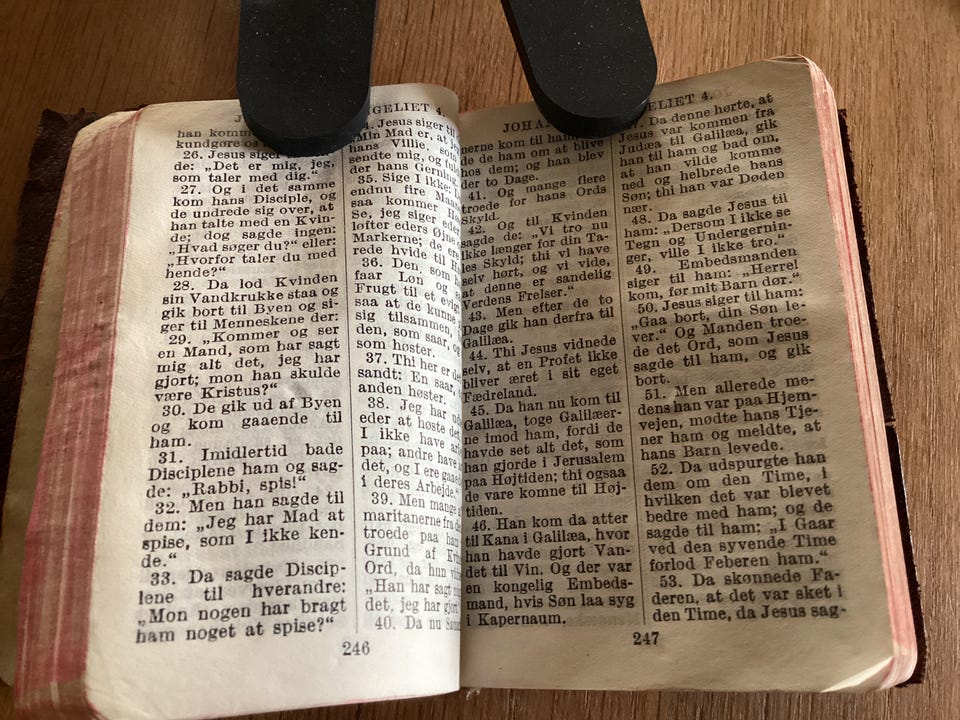 GELIET 4.
han kom
kundgøre os
26. Jesus siger
de: „Det er mig, jeg,
som taler med dig.“
27. Og i det samme
kom hans Disciple, og
de undrede sig over, at
han talte med en Kvin-
de; dog sagde ingen:
„Hvad søger du?“ eller:
„Hvorfor taler du med
hende?“
28. Da lod Kvinden
sin Vandkrukke staa og
gik bort til Byen og si-
ger til Menneskene der:
29. „Kommer og ser
en Mand, som har sagt
mig alt det, jeg har
gjort; mon han skulde
være Kristus?“
30. De gik ud af Byen
og kom gaaende til
ham.
31. Imidlertid bade
Disciplene ham og sag-
de: „Rabbi, spis!“
32. Men han sagde til
dem: „Jeg har Mad at
spise, som I ikke ken-
de.“
33. Da sagde Discip-
lene til hverandre:
„Mon nogen har bragt
ham noget at spise?“
Jesus siger til
„Min Mad er, at jeg
hans Villie, som
sendte mig, og
der hans Gerning.
35. Sige I ikke:
endnu fire
saa kommer
Se, jeg siger eder
løfter eders Øjne
Markerne; de ere
rede hvide til
36. Den, som
faar Løn og
Frugt til et evigt
saa at de kunne
sig tilsammen,
den, som saar, og
som høster.
37. Thi her er
sandt: En saar, og
anden høster.
38. Jeg har
eder at høste det,
I ikke have
paa; andre have
det, og I ere
i deres Arbejde.“
39. Men mange
maritanerne fra
troede paa ham
Grund af
Ord, da hun
„Han har sagt
det, jeg har gjort
40. Da nu
246
JOHAN
ELIET 4.
nerne kom til
de ham om at blive
hos dem; og han blev
der to Dage.
41. Og mange flere
troede for hans Ords
Skyld.
42. Og til Kvinden
sagde de: „Vi tro nu
ikke længer for din Ta-
les Skyld; thi vi have
selv hørt, og vi vide,
at denne er sandelig
Verdens Frelser.“
43. Men efter de to
Dage gik han derfra til
Galilæa.
44. Thi Jesus vidnede
selv, at en Profet ikke
bliver æret i sit eget
Fædreland.
45. Da han nu kom til
Galilæa, toge Galilæer-
ne imod ham, fordi de
havde set alt det, som
han gjorde i Jerusalem
paa Højtiden; thi ogsaa
de vare komne til Høj-
tiden.
46. Han kom da atter
til Kana i Galilæa, hvor
han havde gjort Van-
det til Vin. Og der var
en kongelig Embeds-
mand, hvis Søn laa syg
i Kapernaum.
Da denne hørte, at
Jesus var kommen fra
Judæa til Galilæa, gik
han til ham og bad om,
at han vilde komme
ned og helbrede hans
Søn; thi han var Døden
nær.
48. Da sagde Jesus til
ham: „Dersom I ikke se
Tegn og Undergernin-
ger, ville I ikke tro.“
49. Embedsmanden
siger til ham: „Herre!
kom, før mit Barn dør.“
50. Jesus siger til ham:
„Gaa bort, din Søn le-
ver.“ Og Manden troe-
de det Ord, som Jesus
sagde til ham, og gik
bort.
51. Men allerede me-
dens han var paa Hjem-
vejen, mødte hans Tje-
ner ham og meldte, at
hans Barn levede.
52. Da udspurgte han
dem om den Time, i
hvilken det var blevet
bedre med ham; og de
sagde til ham: „I Gaar
ved den syvende Time
forlod Feberen ham.“
53. Da skønnede Fa-
deren, at det var sket i
den Time, da Jesus sag-
247